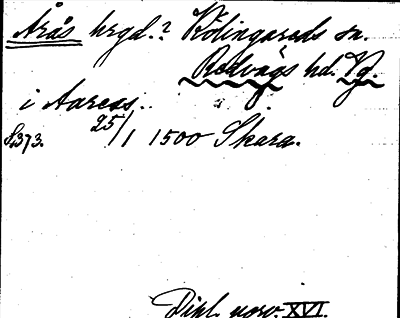 Årås hrgd.? Kölingareds sn.
Redvägs hd. Vg.
i Aareas.
S. 373. 25/1 1500 Skara.
Dipl. norv. XVI.